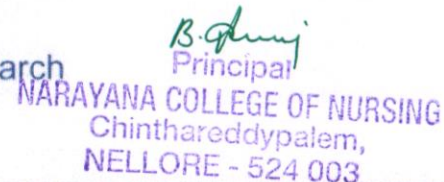 arch
Principal
NARAYANA COLLEGE OF NURSING
Chinthareddypalem,
NELLORE - 524 003